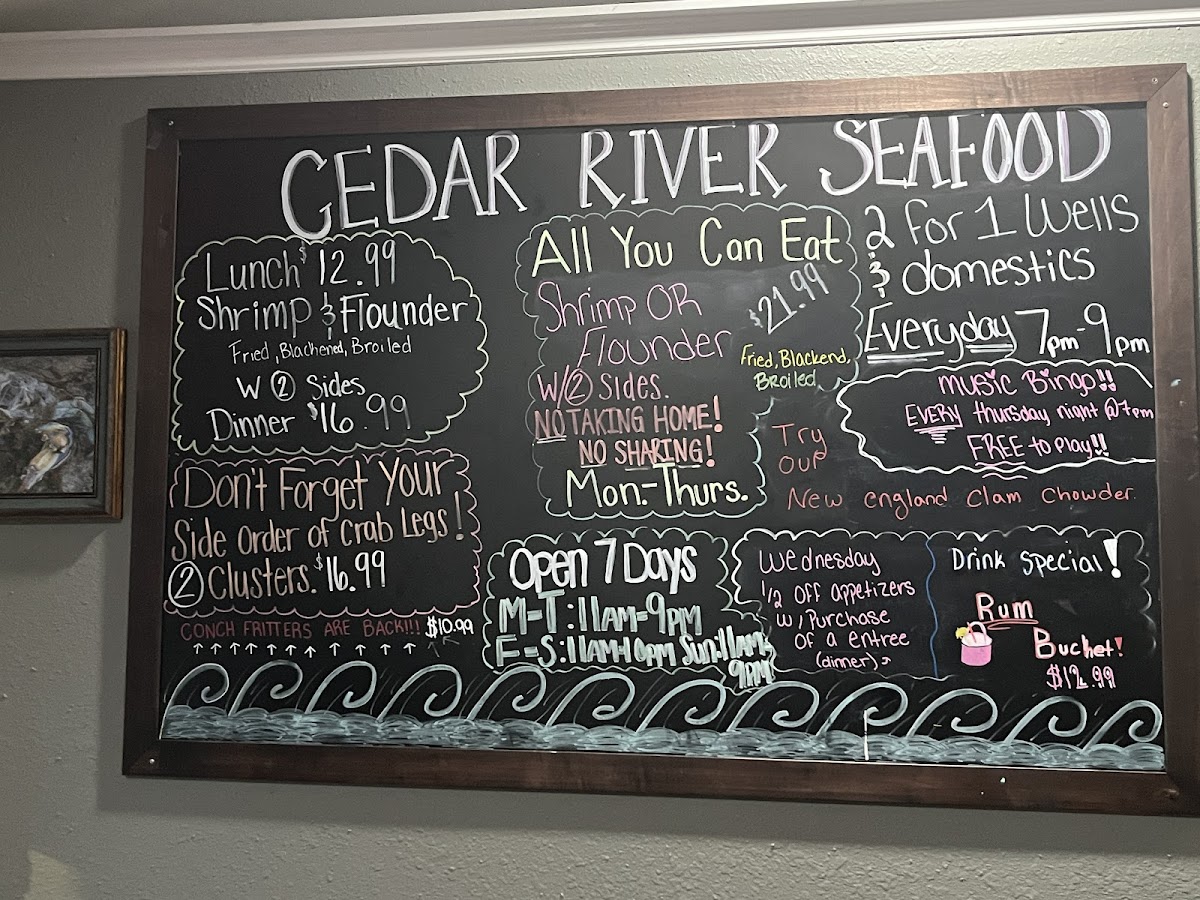 CEDAR RIVER SEAFOOD
Lunch $12.99
Shrimp & Flounder
Fried, Blachened, Broiled
W ② Sides
Dinner $16.99
Don't Forget Your
Side Order of Crab Legs!
② Clusters. $16.99
CONCH FRITTERS ARE BACK!!! $10.99
All You Can Eat
Shrimp OR
Flounder
$21.99
W/② Sides.
Fried, Blackend,
Broiled
NO TAKING HOME!
NO SHARING!
Mon.-Thurs.
2 for 1 Wells
& domestics
Everyday 7pm-9pm
music Bingo!!
EVERY thursday night @7pm
FREE to play!!
Try
our
New england Clam Chowder.
Open 7 Days
M-T: 11AM-9PM
F-S: 11AM-10PM Sun: 11AM-
9PM
Wednesday
1/2 off appetizers
w/ Purchase
of a entree
(dinner)
Drink special!
Rum
Bucket!
$12.99